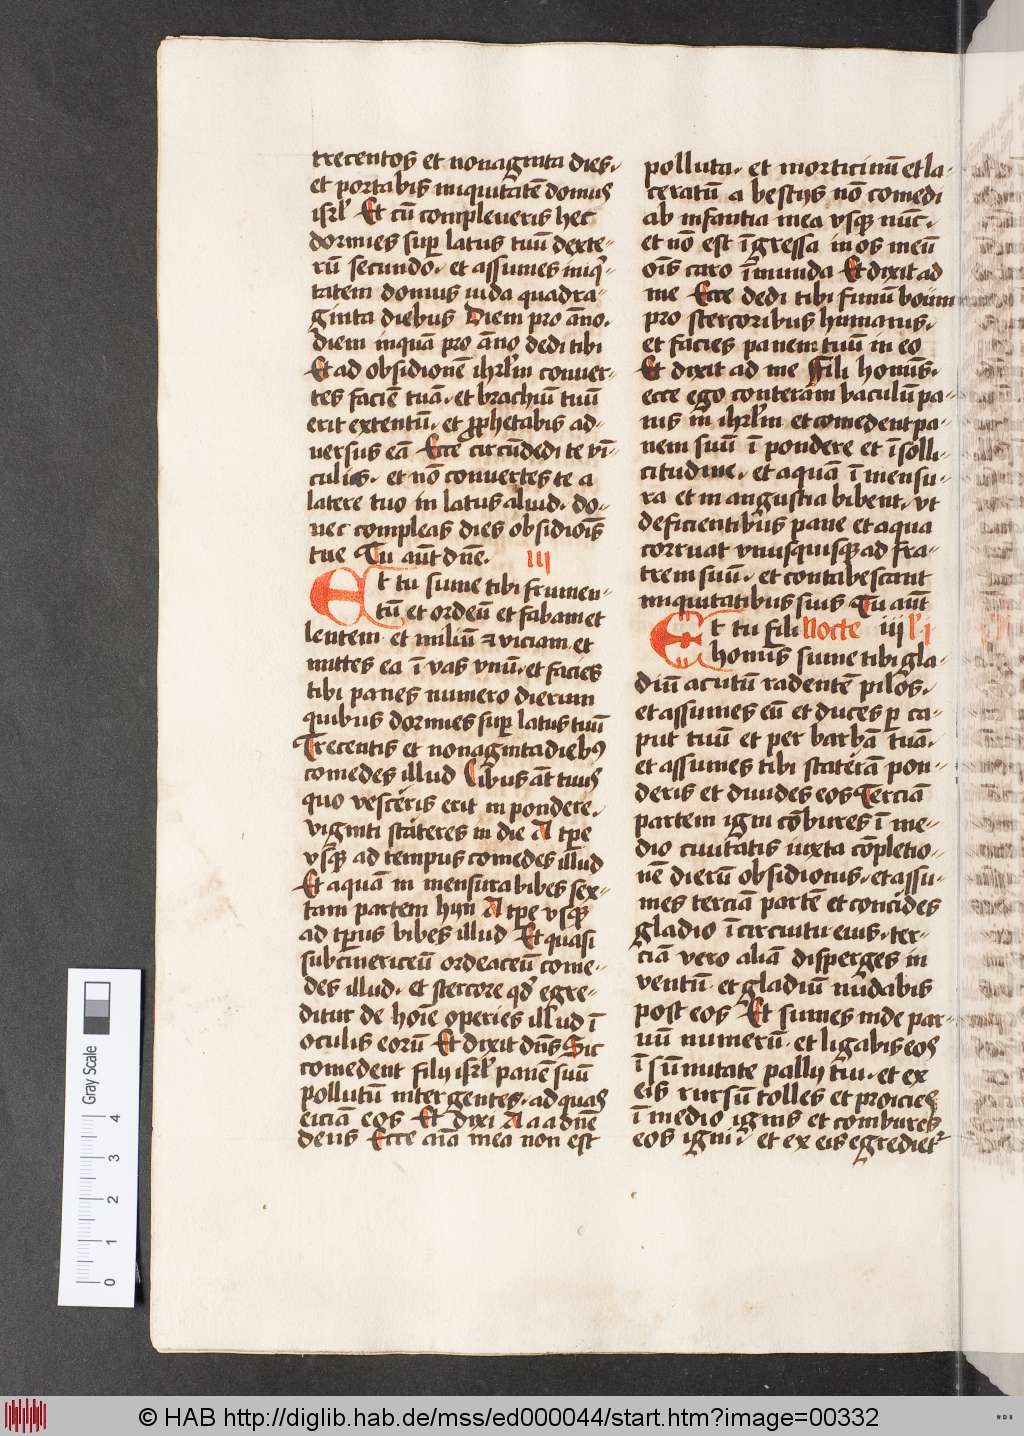 trecentos et nonaginta dies.
et portabis iniquitatē domus
isrl' Et cū compleueris hec
dormies sup latus tuū dexte-
rū secundo. et assumes iniq'-
tatem domus iuda quadra-
ginta diebus Diem pro āno.
diem inquā pro āno dedi tibi
Et ad obsidionē ihrl'm conuer-
tes faciē tuā. et brachiū tuū
erit extentū. et pphetabis ad-
uersus eā Ecce circūdedi te vī-
culis. et nō conuertes te a
latere tuo in latus aliud. do-
nec compleas dies obsidiōis
tue Tu aūt dne. III
Et tu sume tibi frumen-
tū et ordeū et fabam et
lentem et miliū et viciam et
mittes ea ī vas vnū. et facies
tibi panes numero dierum
quibus dormies sup latus tuū
Trecentis et nonaginta diebus
comedes illud Cibus āt tuus
quo vesceris erit in pondere.
viginti stateres in die A tpe
vsq ad tempus comedes illud
Et aquam in mensura bibes sex-
tam partem hyn A tpe vsq
ad tpus bibes illud Et quasi
subcinericeū ordeaceū come-
des illud. et stercore qd' egre-
ditur de hoīe operies illud ī
oculis eorū Et dixit dns Sic
comedent filij isrl' panē suū
pollutū inter gentes. ad quas
eiciā eos Et dixi A a a dnē
deus Ecce aīa mea non est
polluta. et morticinū et la-
ceratū a bestijs nō comedi
ab infantia mea vsq nūc.
et nō est īgressa in os meū
oīs caro īmunda Et dixit ad
me Ecce dedi tibi fimū boum
pro stercoribus humanis.
et facies panem tuū in eo
Et dixit ad me Fili hominis.
ecce ego conteram baculū pa-
nis in ihrl'm et comedent pa-
nem suū ī pondere et ī solli-
citudine. et aquā ī mensu-
ra et in angustia bibent. vt
deficientibus pane et aqua
corruat vnusquisq ad fra-
trem suū. et contabescant
in iniquitatibus suis Tu aūt
Et tu fili Nocte iij l'i
hominis sume tibi gla-
diū acutū radentē pilos.
et assumes eū et duces p ca-
put tuū et per barbā tuā.
et assumes tibi staterā pon-
deris et diuides eos Terciā
partem igni cōbures ī me-
dio ciuitatis iuxta cōpletio-
nē dierū obsidionis. et assu-
mes terciā partē et concides
gladio ī circuitu eius. ter-
ciā vero aliā disperges in
ventū et gladiū nudabis
post eos Et sumes inde par-
uū numerū. et ligabis eos
ī sūmitate pallij tui. et ex
eis rursū tolles et proicies
ī medio ignis et combures
eos igni et ex eis egrediet'
Gray Scale
0 1 2 3 4
© HAB http://diglib.hab.de/mss/ed000044/start.htm?image=00332